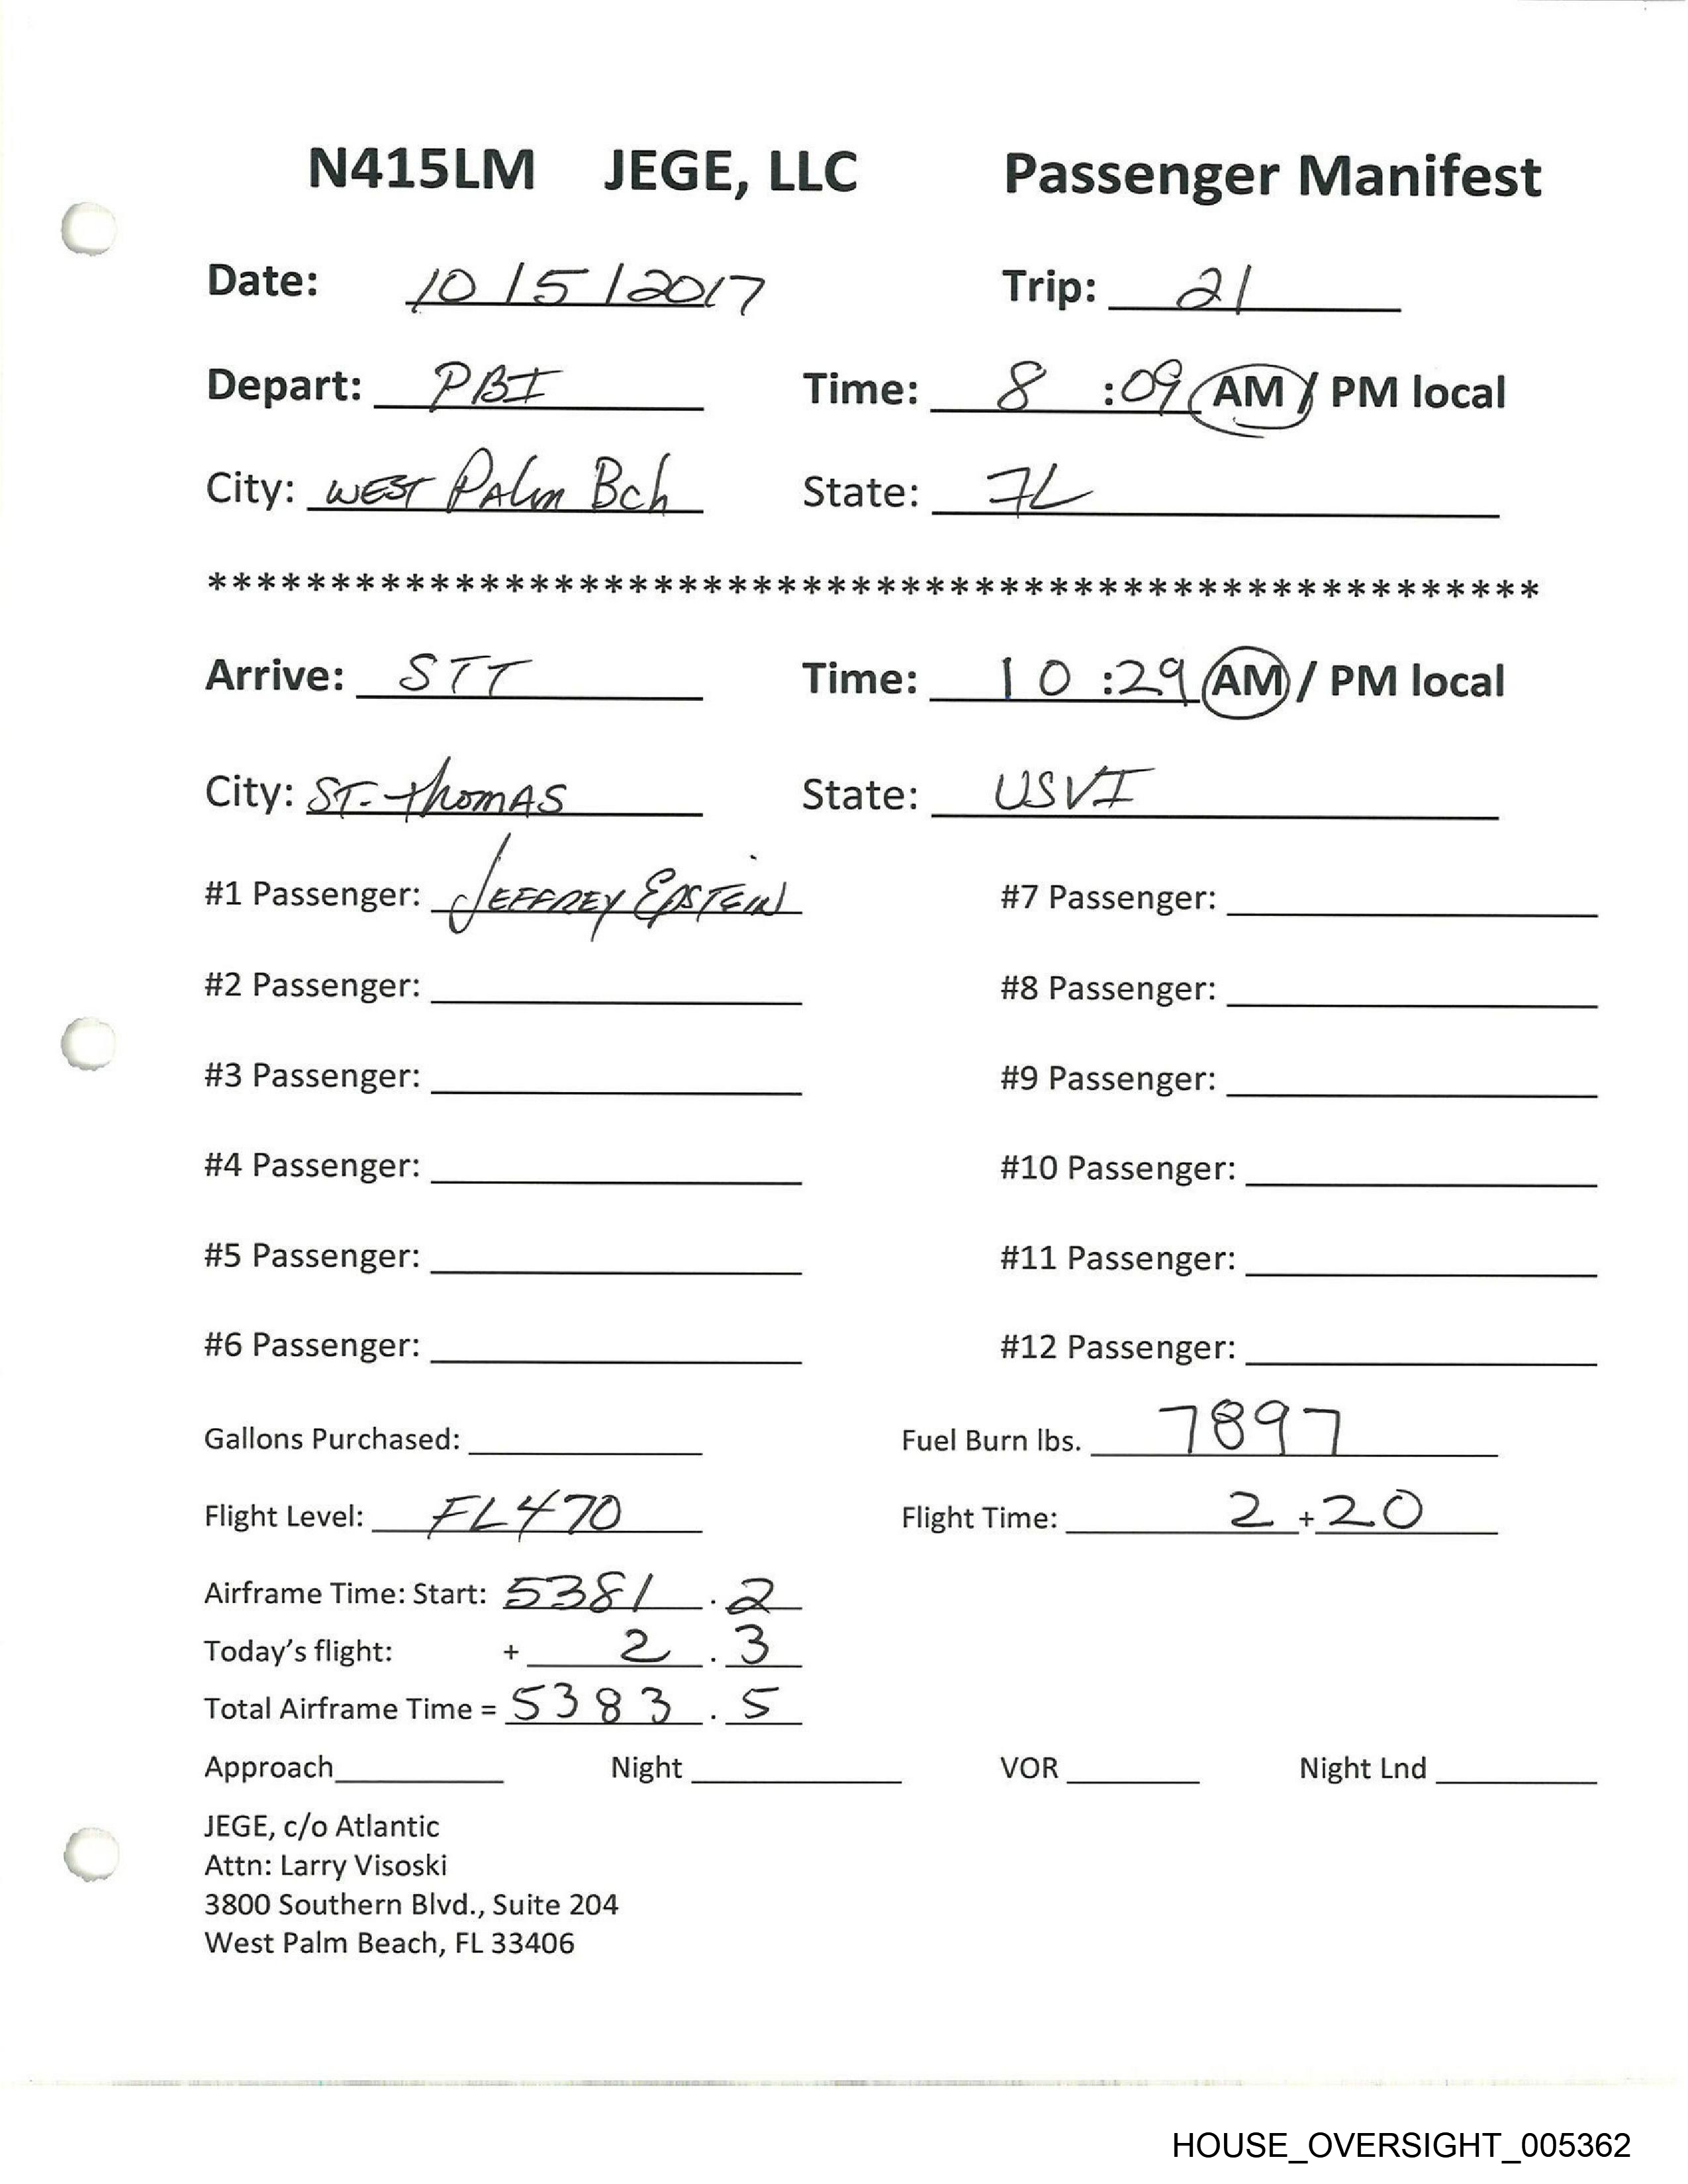 N415LM JEGE, LLC Passenger Manifest
Date: 10/5/2017 Trip: 21
Depart: PBI Time: 8 :09 AM / PM local
City: WEST PALm Bch State: FL
******************************************************
Arrive: STT Time: 10 :29 AM / PM local
City: ST. thomAS State: USVI
#1 Passenger: JEFFREY EPSTEIN #7 Passenger:
#2 Passenger: #8 Passenger:
#3 Passenger: #9 Passenger:
#4 Passenger: #10 Passenger:
#5 Passenger: #11 Passenger:
#6 Passenger: #12 Passenger:
Gallons Purchased: Fuel Burn lbs. 7897
Flight Level: FL470 Flight Time: 2 + 20
Airframe Time: Start: 5381 . 2
Today's flight: + 2 . 3
Total Airframe Time = 5383 . 5
Approach Night VOR Night Lnd
JEGE, c/o Atlantic
Attn: Larry Visoski
3800 Southern Blvd., Suite 204
West Palm Beach, FL 33406
HOUSE_OVERSIGHT_005362